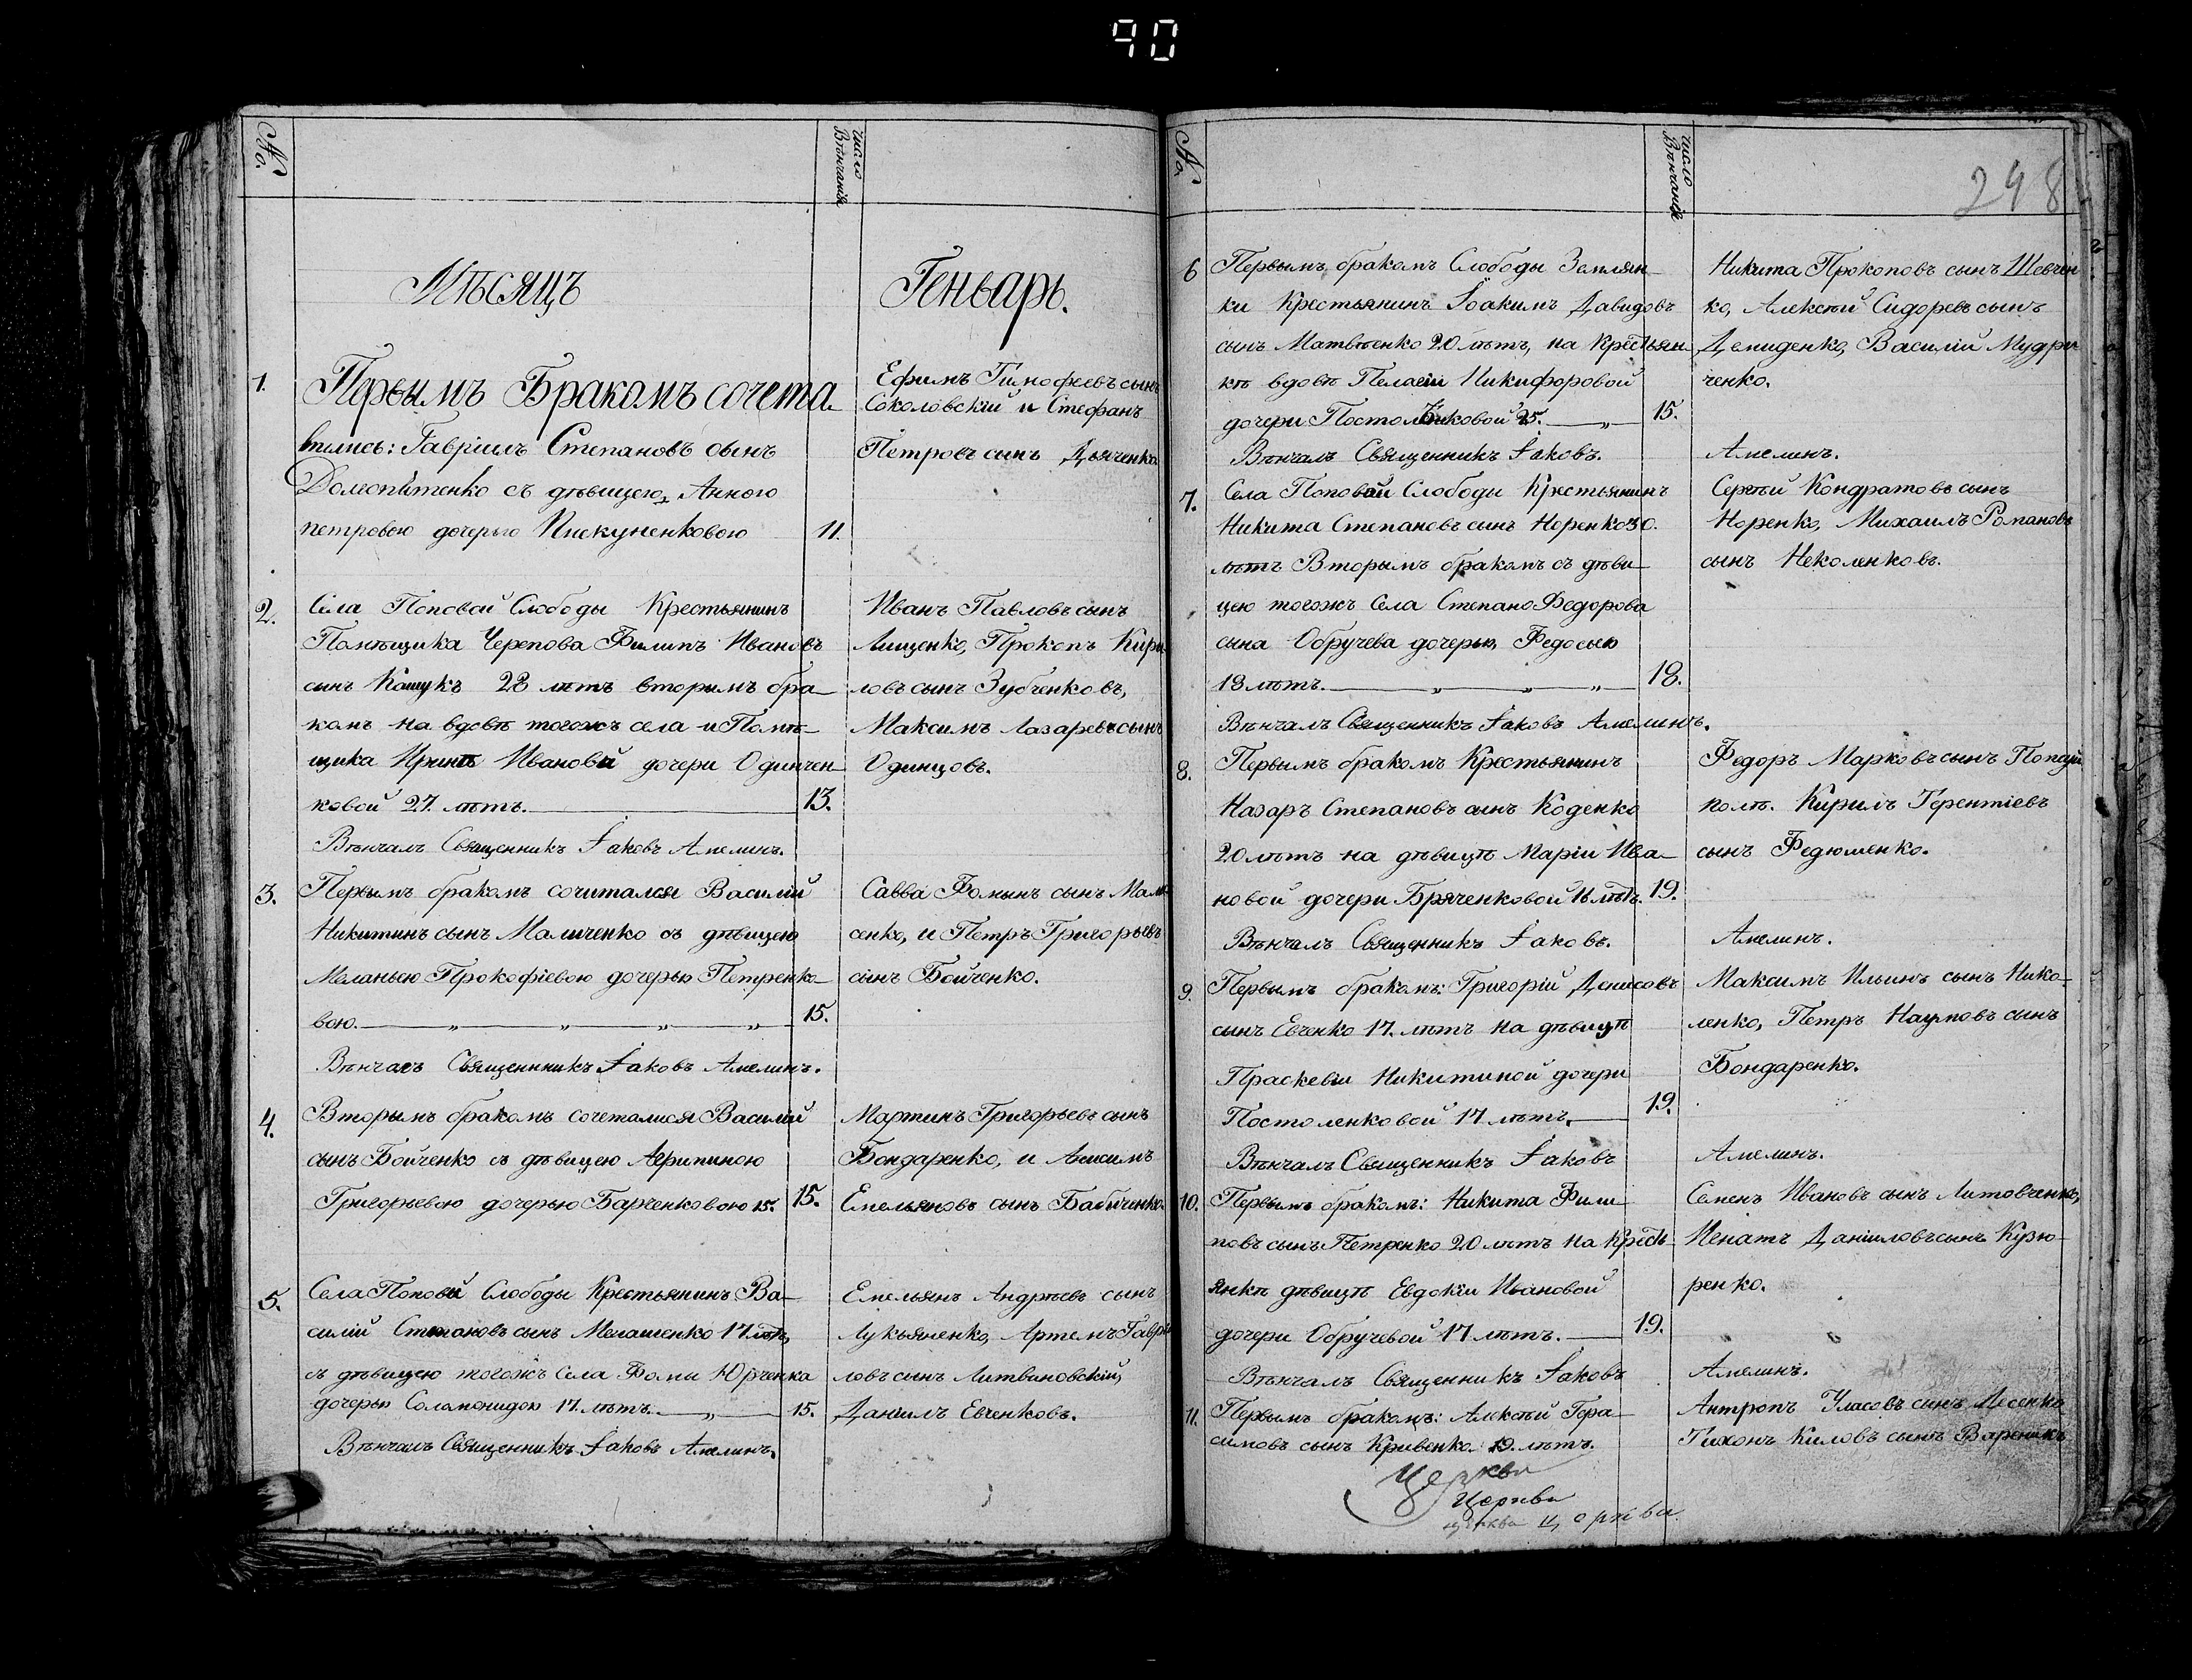 90
№.
число
Вѣнчанія
Мѣсяцъ
Генварь.
1.
Первымъ Бракомъ сочета
вшись: Гавріилъ Степановъ сынъ
съ дѣвицею, Анною
петровою дочерью Пискуненковою
11.
Ефимъ Тимофеевъ сынъ
Соколовскій и Стефанъ
Петровъ сынъ Дьяченко
2.
Села Поповой Слободы Крестьянинъ
Помѣщика Черепова Филипъ Ивановъ
сынъ 28 лѣтъ вторымъ бра-
комъ на вдовѣ тогожъ села и Помѣ-
щика Иринѣ Ивановой дочери Одинчен-
ковой 27. лѣтъ.
13.
Вѣнчалъ Священникъ Іаковъ Амелинъ.
Иванъ Павловъ сынъ
Лищенко, Прокопъ Кири
ловъ сынъ Зубченковъ,
Максимъ Лазаревъ сынъ
Одинцовъ.
3.
Первымъ бракомъ сочитался Василій
Никитинъ сынъ Маличенко съ дѣвицею
Меланьею Прокофіевою дочерью Петренко-
вою. „ „ „ „
15.
Вѣнчалъ Священникъ Іаковъ Амелинъ.
Савва Фоминъ сынъ
сенко, и Петръ Григорьевъ
сынъ Бойченко.
4.
Вторымъ бракомъ сочетался Василій
сынъ Бойченко съ дѣвицею Агрипиною
Григорьевою дочерью Барченковою 15.
15.
Мартинъ Григорьевъ сынъ
Бондаренко, и Анисимъ
Емельяновъ сынъ Бабиченко.
5.
Села Поповой Слободы Крестьянинъ Ва-
силій Степановъ сынъ 17. лѣтъ,
съ дѣвицею тогожъ Села Фомы Юрченка
дочерью Соломонидою 17. лѣтъ. „
15.
Вѣнчалъ Священникъ Іаковъ Амелинъ.
Емельянъ Андрѣевъ сынъ
Лукьяненко, Артемъ Гаври
ловъ сынъ Литвиновскій,
Даніилъ Евченковъ.
№.
число
Вѣнчанія
248
6
Первымъ бракомъ Слободы Землян-
ки Крестьянинъ Іоакимъ Давидовъ
сынъ Матвѣенко 20 лѣтъ, на Крестьян
кѣ вдовѣ Пелагіи Никифоровой
дочери 25. „
15.
Вѣнчалъ Священникъ Іаковъ. Амелинъ.
Никита Прокоповъ сынъ Шевчен
ко, Алексѣй Сидоревъ сынъ
Демиденко, Василій Мудри
ченко.
7.
Села Поповой Слободы Крестьянинъ
Никита Степановъ сынъ Норенко 30.
лѣтъ Вторымъ бракомъ съ дѣви-
цею тогожъ Села Степана Федорова
сына Обручева дочерью Федосьею
18 лѣтъ. „ „ „
18.
Вѣнчалъ Священникъ Іаковъ Амелинъ.
Сергѣй Кондратовъ сынъ
Норенко, Михаилъ Романовъ
сынъ Неколенковъ.
8.
Первымъ бракомъ Крестьянинъ
Назаръ Степановъ сынъ Коденко
20 лѣтъ на дѣвицѣ Маріи Ива-
новой дочери Бряченковой 16 лѣтъ.
19.
Вѣнчалъ Священникъ Іаковъ. Амелинъ.
Федоръ Марковъ сынъ
Кирилъ Терентіевъ
сынъ Федюшенко.
9.
Первымъ бракомъ: Григорій Денисовъ
сынъ Евченко 17. лѣтъ на дѣвицѣ
Праскевіи Никитиной дочери
Постоленковой 17 лѣтъ.
19.
Вѣнчалъ Священникъ Іаковъ Амелинъ.
Максимъ Ильинъ сынъ Нико-
ленко, Петръ Наумовъ сынъ
Бондаренко.
10.
Первымъ бракомъ: Никита Фили
повъ сынъ Петренко 20 лѣтъ на Кресть
янкѣ дѣвицѣ Евдокіи Ивановой
дочери Обручевой 17 лѣтъ.
19.
Вѣнчалъ Священникъ Іаковъ Амелинъ.
Семенъ Ивановъ сынъ Литовченко,
Игнатъ Даніиловъ сынъ Кузю-
ренко.
11.
Первымъ бракомъ: Алексѣй Гера-
симовъ сынъ Кривенко 19. лѣтъ.
Антропъ Уласовъ сынъ
Тихонъ Киловъ сынъ Вареникъ
Церкви
Церкви
церкви Церкви